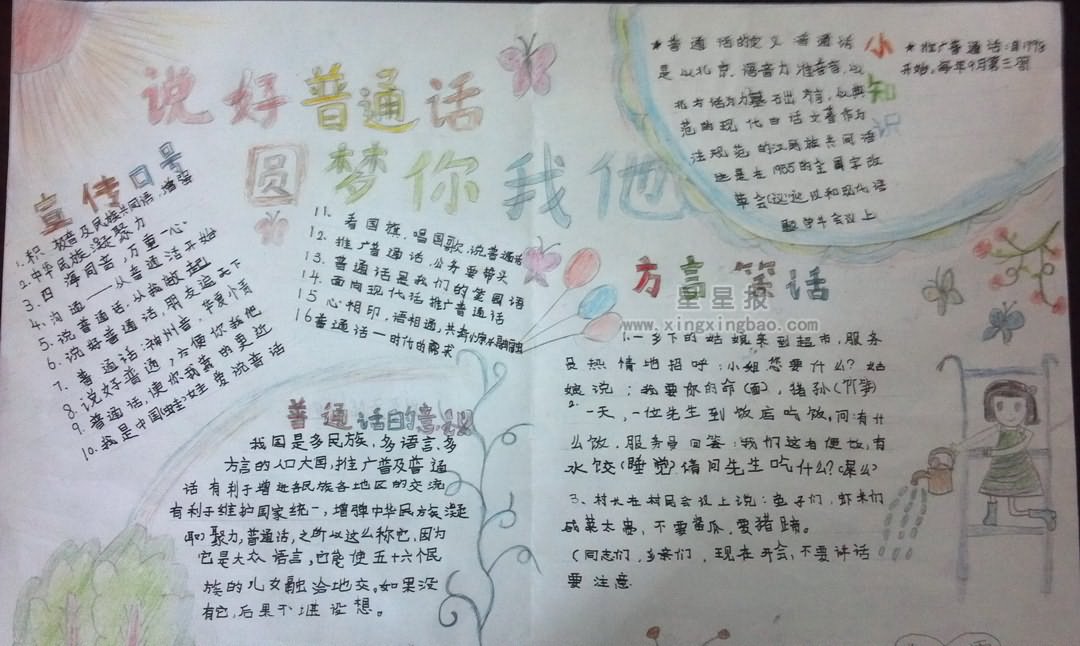 说好普通话
圆梦你我他
宣传口号
1.积 极普及民族共同语,增强
中华民族凝聚力
2.四海同音,万众一心
4.沟通——从普通话开始
5.说普通话,从我做起
6.说好普通话,朋友遍天下
7.普通话:神州音,华夏情
8.说好普通话,方便你我他
9.普通话,使你我靠的更近
10.我是中国娃娃 爱说普话
11.看国旗、唱国歌、说普通话
12.推广普通话,公务要带头
13.普通话是我们的校园语
14.面向现代话推广普通话
15心相印,语相通,共
16普通话——时代的需求
普通话的意义
我国是多民族,多语言、多
方言的人口大国,推广普及普通
话有利于增进各民族各地区的交流
有利于维护国家统一,增强中华民族凝
聚力,普通话,之所以这么称它,因为
它是大众语言,它能使五十六个民
族的儿女融洽地交。如果没
有它,后果不堪设想。
小知识
★普通话的定义 普通话
是以北京 语音为准音,以
北方话为基础方言,以典
范的现代白话文著作为
法规范的汉民族共同语
这是在1955的全国字改
革会议以和现代语
题学术会议上
★推广普通话:自1998
开始,每年9月第三周
方言笑话
星星报
www.xingxingbao.com
1.一乡下的姑娘来到超市,服务
员热情地招呼:小姐您要什么?姑
娘说:我要你的命(面),猪孙(竹笋)
2.一天,一位先生到饭店吃饭,问有什
么饭。服务员回答:我们这有便饭,有
水饺(睡觉)请问先生吃什么?(屎么)
3、村长在村民会议上说:兔子们,虾米们
咸菜太贵,不要酱瓜,要猪蹄。
(同志们,乡亲们,现在开会,不要讲话
要注意